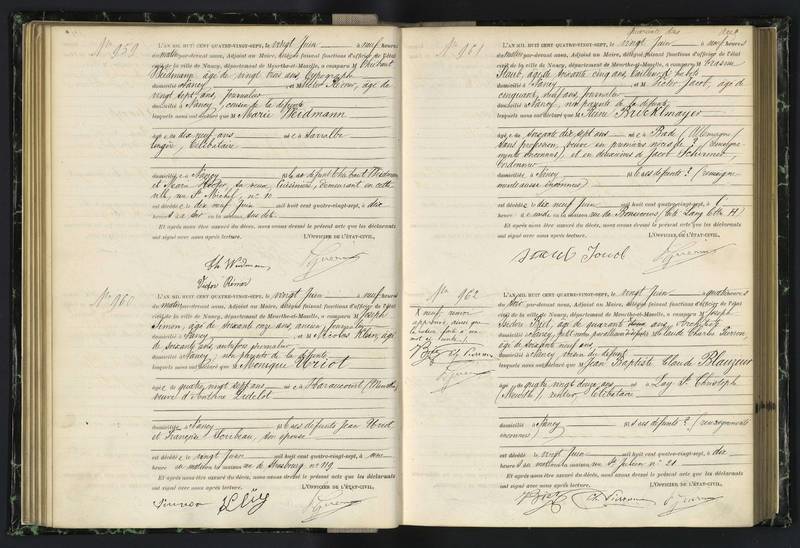 N° 959
L'AN MIL HUIT CENT QUATRE-VINGT-SEPT, le vingt Juin à neuf heures
du matin par-devant nous, Adjoint au Maire, délégué faisant fonctions d'officier de l'état
civil de la ville de Nancy, département de Meurthe-et-Moselle, a comparu M Thiébaut
Weidmann âgé de vingt trois ans, typographe
domicilié à Nancy et Victor Rémor, âgé de
vingt sept ans, journalier
domicilié à Nancy, cousin de la défunte
lesquels nous ont déclaré que M Marie Weidmann
âgée de dix neuf ans née à Sarralbe
lingère, célibataire
domiciliée à Nancy fille de défunt Thiébaut Weidmann
et Marie Hoffer, sa veuve, cuisinière, demeurant en cette
ville, rue St Michel, n° 10
est décédée le dix neuf Juin mil huit cent quatre-vingt-sept, à dix
heures du soir en la maison sus dite
Et après nous être assuré du décès, nous avons dressé le présent acte que les déclarants
ont signé avec nous après lecture. L'OFFICIER DE L'ÉTAT-CIVIL,
Th Weidmann
Victor Rémor
N° 960
L'AN MIL HUIT CENT QUATRE-VINGT-SEPT, le vingt Juin à neuf heures
du matin par-devant nous, Adjoint au Maire, délégué faisant fonctions d'officier de l'état
civil de la ville de Nancy, département de Meurthe-et-Moselle, a comparu M Joseph
Simon, âgé de soixante onze ans, ancien journalier
domicilié à Nancy et Nicolas Klein, âgé
de soixante ans, journalier
domicilié à Nancy, de la défunte
lesquels nous ont déclaré que M Monique Uriot
âgée de quatre vingt sept ans née à Haraucourt (Meurthe)
veuve d'Antoine Didelot
domiciliée à Nancy fille de défunts Jean Uriot
et Françoise son épouse
est décédée le vingt Juin mil huit cent quatre-vingt-sept, à une
heure du matin en la maison rue de Strasbourg n° 119
Et après nous être assuré du décès, nous avons dressé le présent acte que les déclarants
ont signé avec nous après lecture. L'OFFICIER DE L'ÉTAT-CIVIL,
N° 961
L'AN MIL HUIT CENT QUATRE-VINGT-SEPT, le vingt Juin à neuf heures
du matin par-devant nous, Adjoint au Maire, délégué faisant fonctions d'officier de l'état
civil de la ville de Nancy, département de Meurthe-et-Moselle, a comparu M Erasme
Staub, âgé de soixante cinq ans, tailleur d'habits
domicilié à Nancy et Victor Jacob, âgé de
cinquante neuf ans, journalier
domicilié à Nancy, non parents de la défunte
lesquels nous ont déclaré que M Reine Brücklmayer
âgée de soixante dix sept ans née à Bade (Allemagne)
sans profession, veuve en premières noces de ? (renseigne-
ments inconnus), et en deuxièmes de Jacob Schirmer,
cordonnier
domiciliée à Nancy fille de défunts ? (renseigne-
ments aussi inconnus)
est décédée le dix neuf Juin mil huit cent quatre-vingt-sept, à
Et après nous être assuré du décès, nous avons dressé le présent acte que les déclarants
ont signé avec nous après lecture. L'OFFICIER DE L'ÉTAT-CIVIL,
Staub Jacob
N° 962
L'AN MIL HUIT CENT QUATRE-VINGT-SEPT, le vingt Juin à quatre heures
du soir par-devant nous, Adjoint au Maire, délégué faisant fonctions d'officier de l'état
civil de la ville de Nancy, département de Meurthe-et-Moselle, a comparu M Joseph
Isidore Briet, âgé de quarante ans, architecte
domicilié à Nancy, Claude Charles Pierron,
âgé de soixante neuf ans,
domicilié à Nancy, du défunt
lesquels nous ont déclaré que M Jean Baptiste Claude Blanzeur
âgé de quatre vingt deux ans né à Lay St Christophe
(Meurthe), rentier, célibataire
domicilié à Nancy fils de défunts ? (renseignements
inconnus)
est décédé le vingt Juin mil huit cent quatre-vingt-sept, à dix
heures du matin en la maison rue St Julien n° 21
Et après nous être assuré du décès, nous avons dressé le présent acte que les déclarants
ont signé avec nous après lecture. L'OFFICIER DE L'ÉTAT-CIVIL,
Ch Pierron